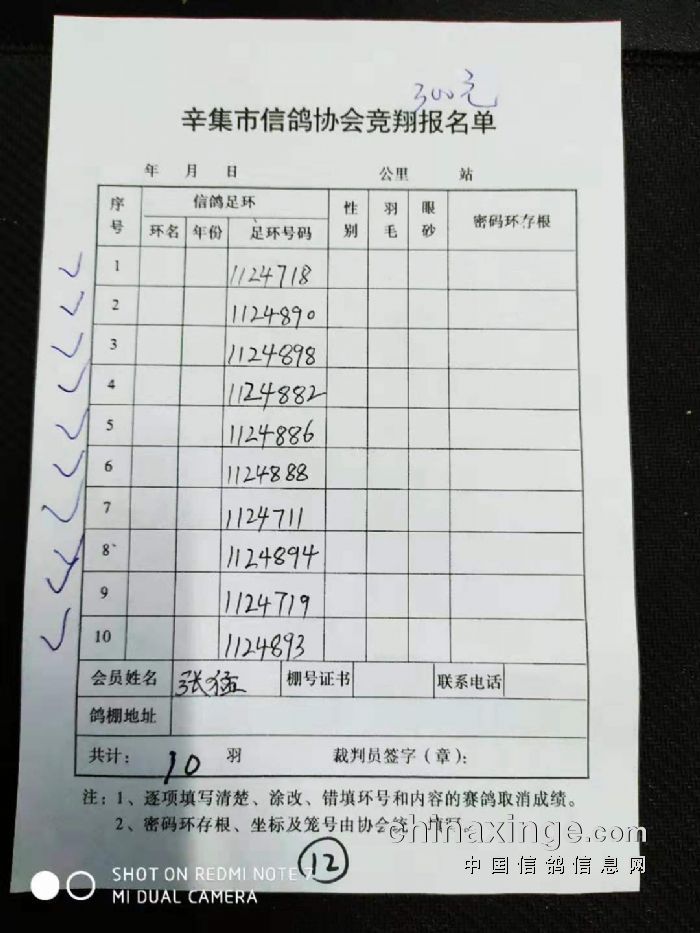 300元
辛集市信鸽协会竞翔报名单
年 月 日 公里 站
序号 信鸽足环 性别 羽毛 眼砂 密码环存根
环名 年份 足环号码
1 1124718
2 1124890
3 1124898
4 1124882
5 1124886
6 1124888
7 1124711
8 1124894
9 1124719
10 1124893
会员姓名 张猛 棚号证书 联系电话
鸽棚地址
共计： 10 羽 裁判员签字（章）：
注：1、逐项填写清楚、涂改、错填环号和内容的赛鸽取消成绩。
2、密码环存根、坐标及笼号由协会统一填写。
chinaxinge.com
中国信鸽信息网
12
SHOT ON REDMI NOTE 7
MI DUAL CAMERA